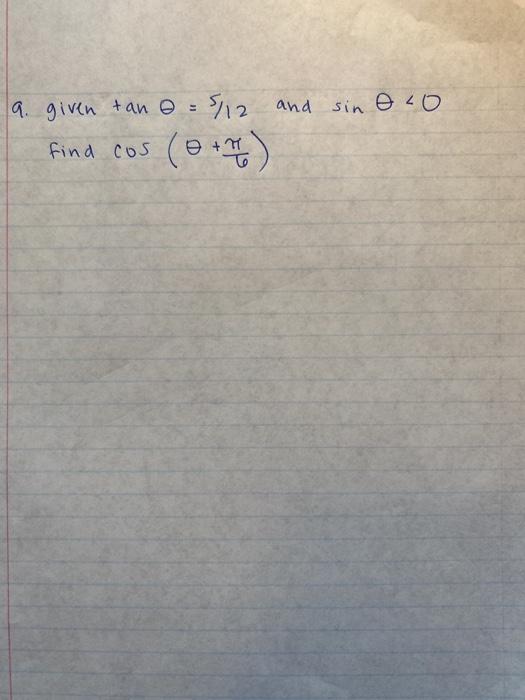 9. given tan θ = 5/12 and sin θ < 0
find cos (θ + π/6)